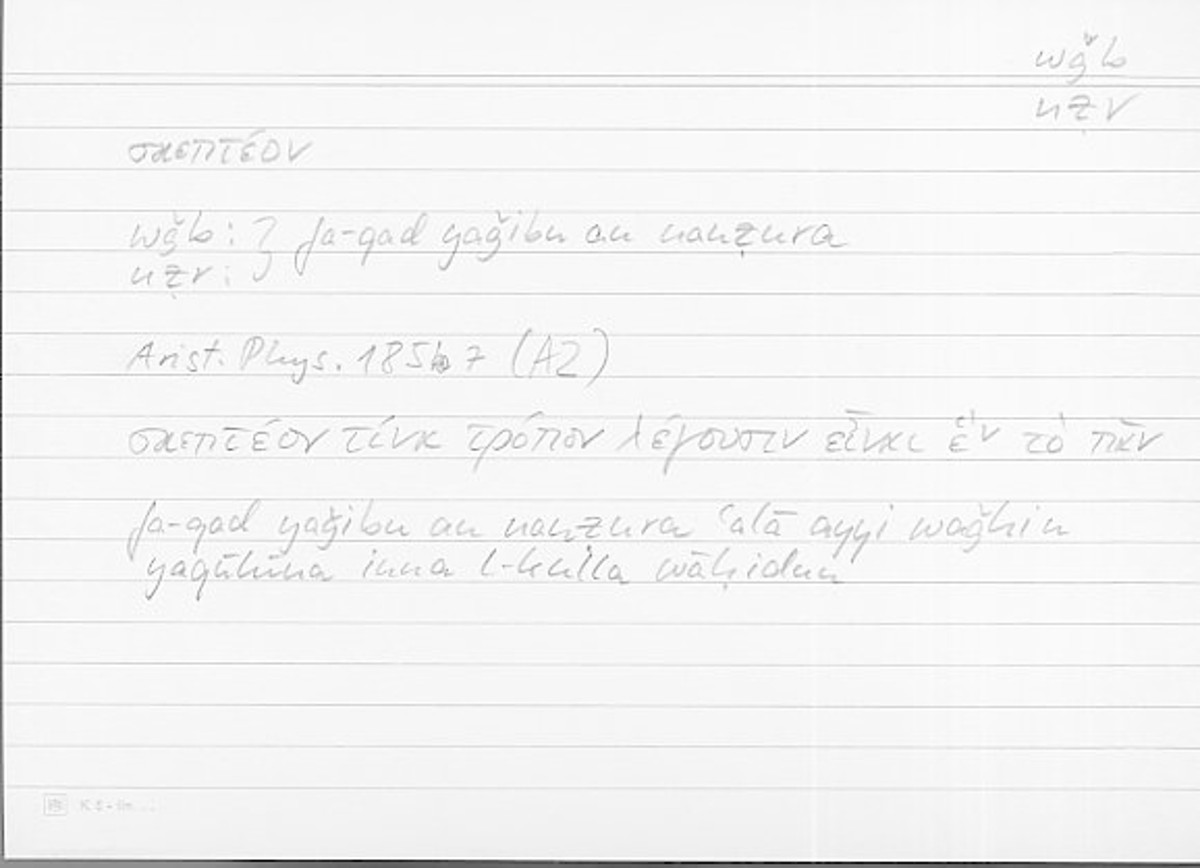 wǧb
nẓr
σκεπτέον
wǧb: } fa-qad yaǧibu an nanẓura
nẓr:
Arist. Phys. 185b7 (A2)
σκεπτέον τίνα τρόπον λέγουσιν εἶναι ἓν τὸ πᾶν
fa-qad yaǧibu an nanẓura ʿalā ayyi waǧhin
yaqūlūna inna l-kulla wāḥidun